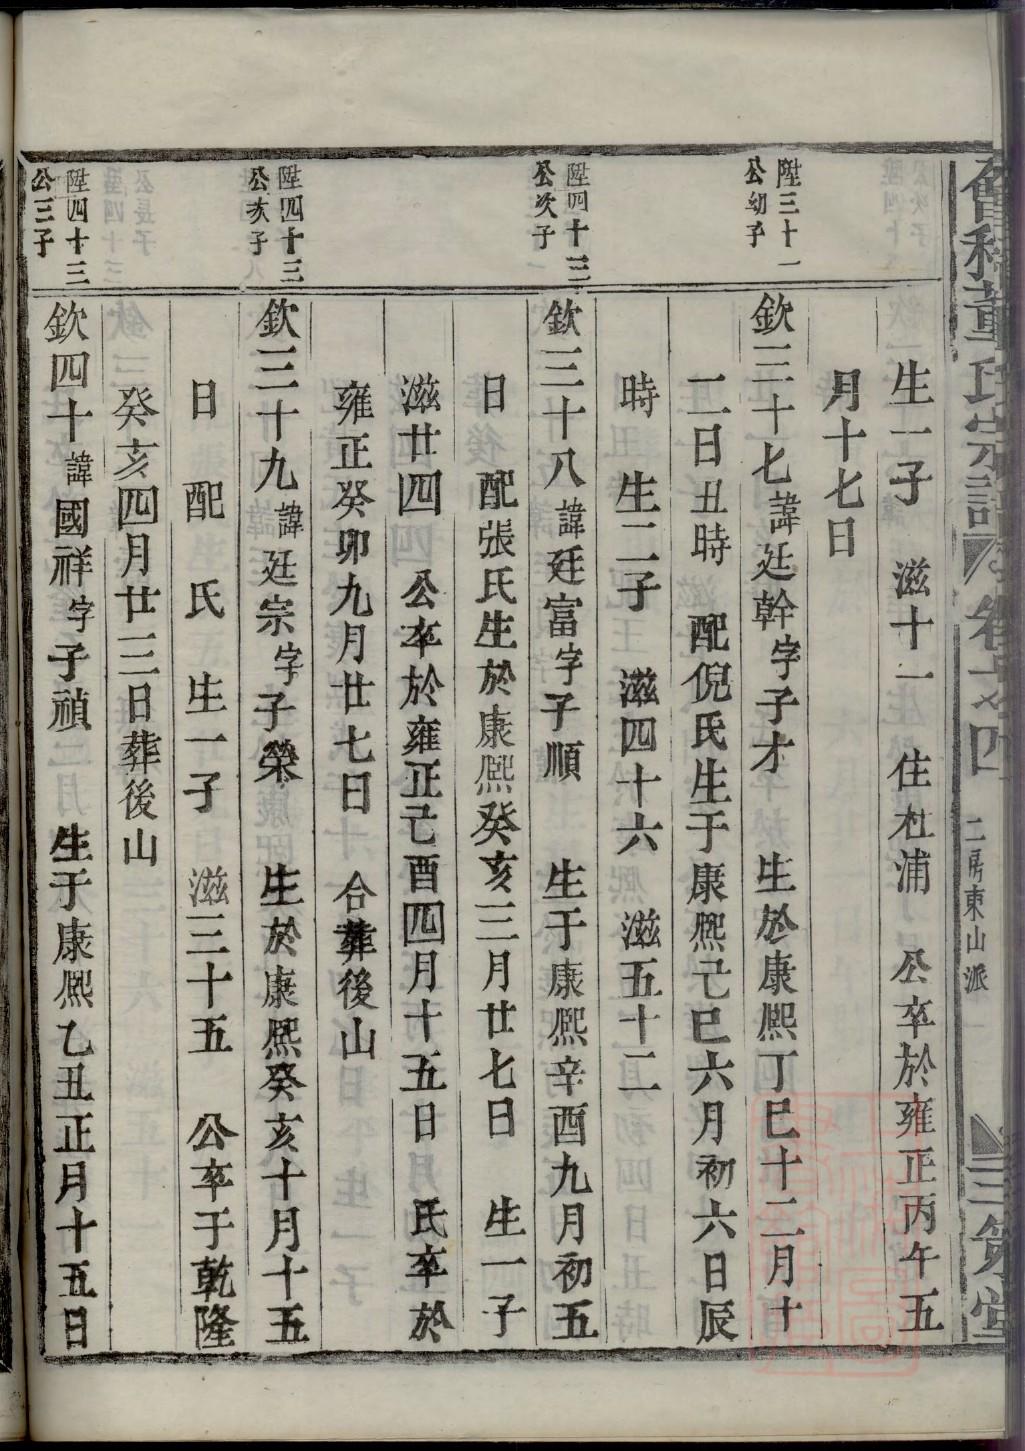 會稽董氏宗譜 卷十四 二房東山派 三策堂
生一子 滋十一 住杜浦 公卒於雍正丙午五
月十七日
陞三十一
公幼子
欽三十七諱廷幹字子才 生於康熙丁巳十二月十
二日丑時 配倪氏生于康熙己巳六月初六日辰
時 生二子 滋四十六 滋五十二
陞四十三
公次子
欽三十八諱廷富字子順 生于康熙辛酉九月初五
日 配張氏生於康熙癸亥三月廿七日 生一子
滋廿四 公卒於雍正己酉四月十五日 氏卒於
雍正癸卯九月廿七日 合葬後山
陞四十三
公次子
欽三十九諱廷宗字子榮 生於康熙癸亥十月十五
日 配 氏 生一子 滋三十五 公卒于乾隆
癸亥四月廿三日葬後山
陞四十三
公三子
欽四十諱國祥字子禎 生于康熙乙丑正月十五日